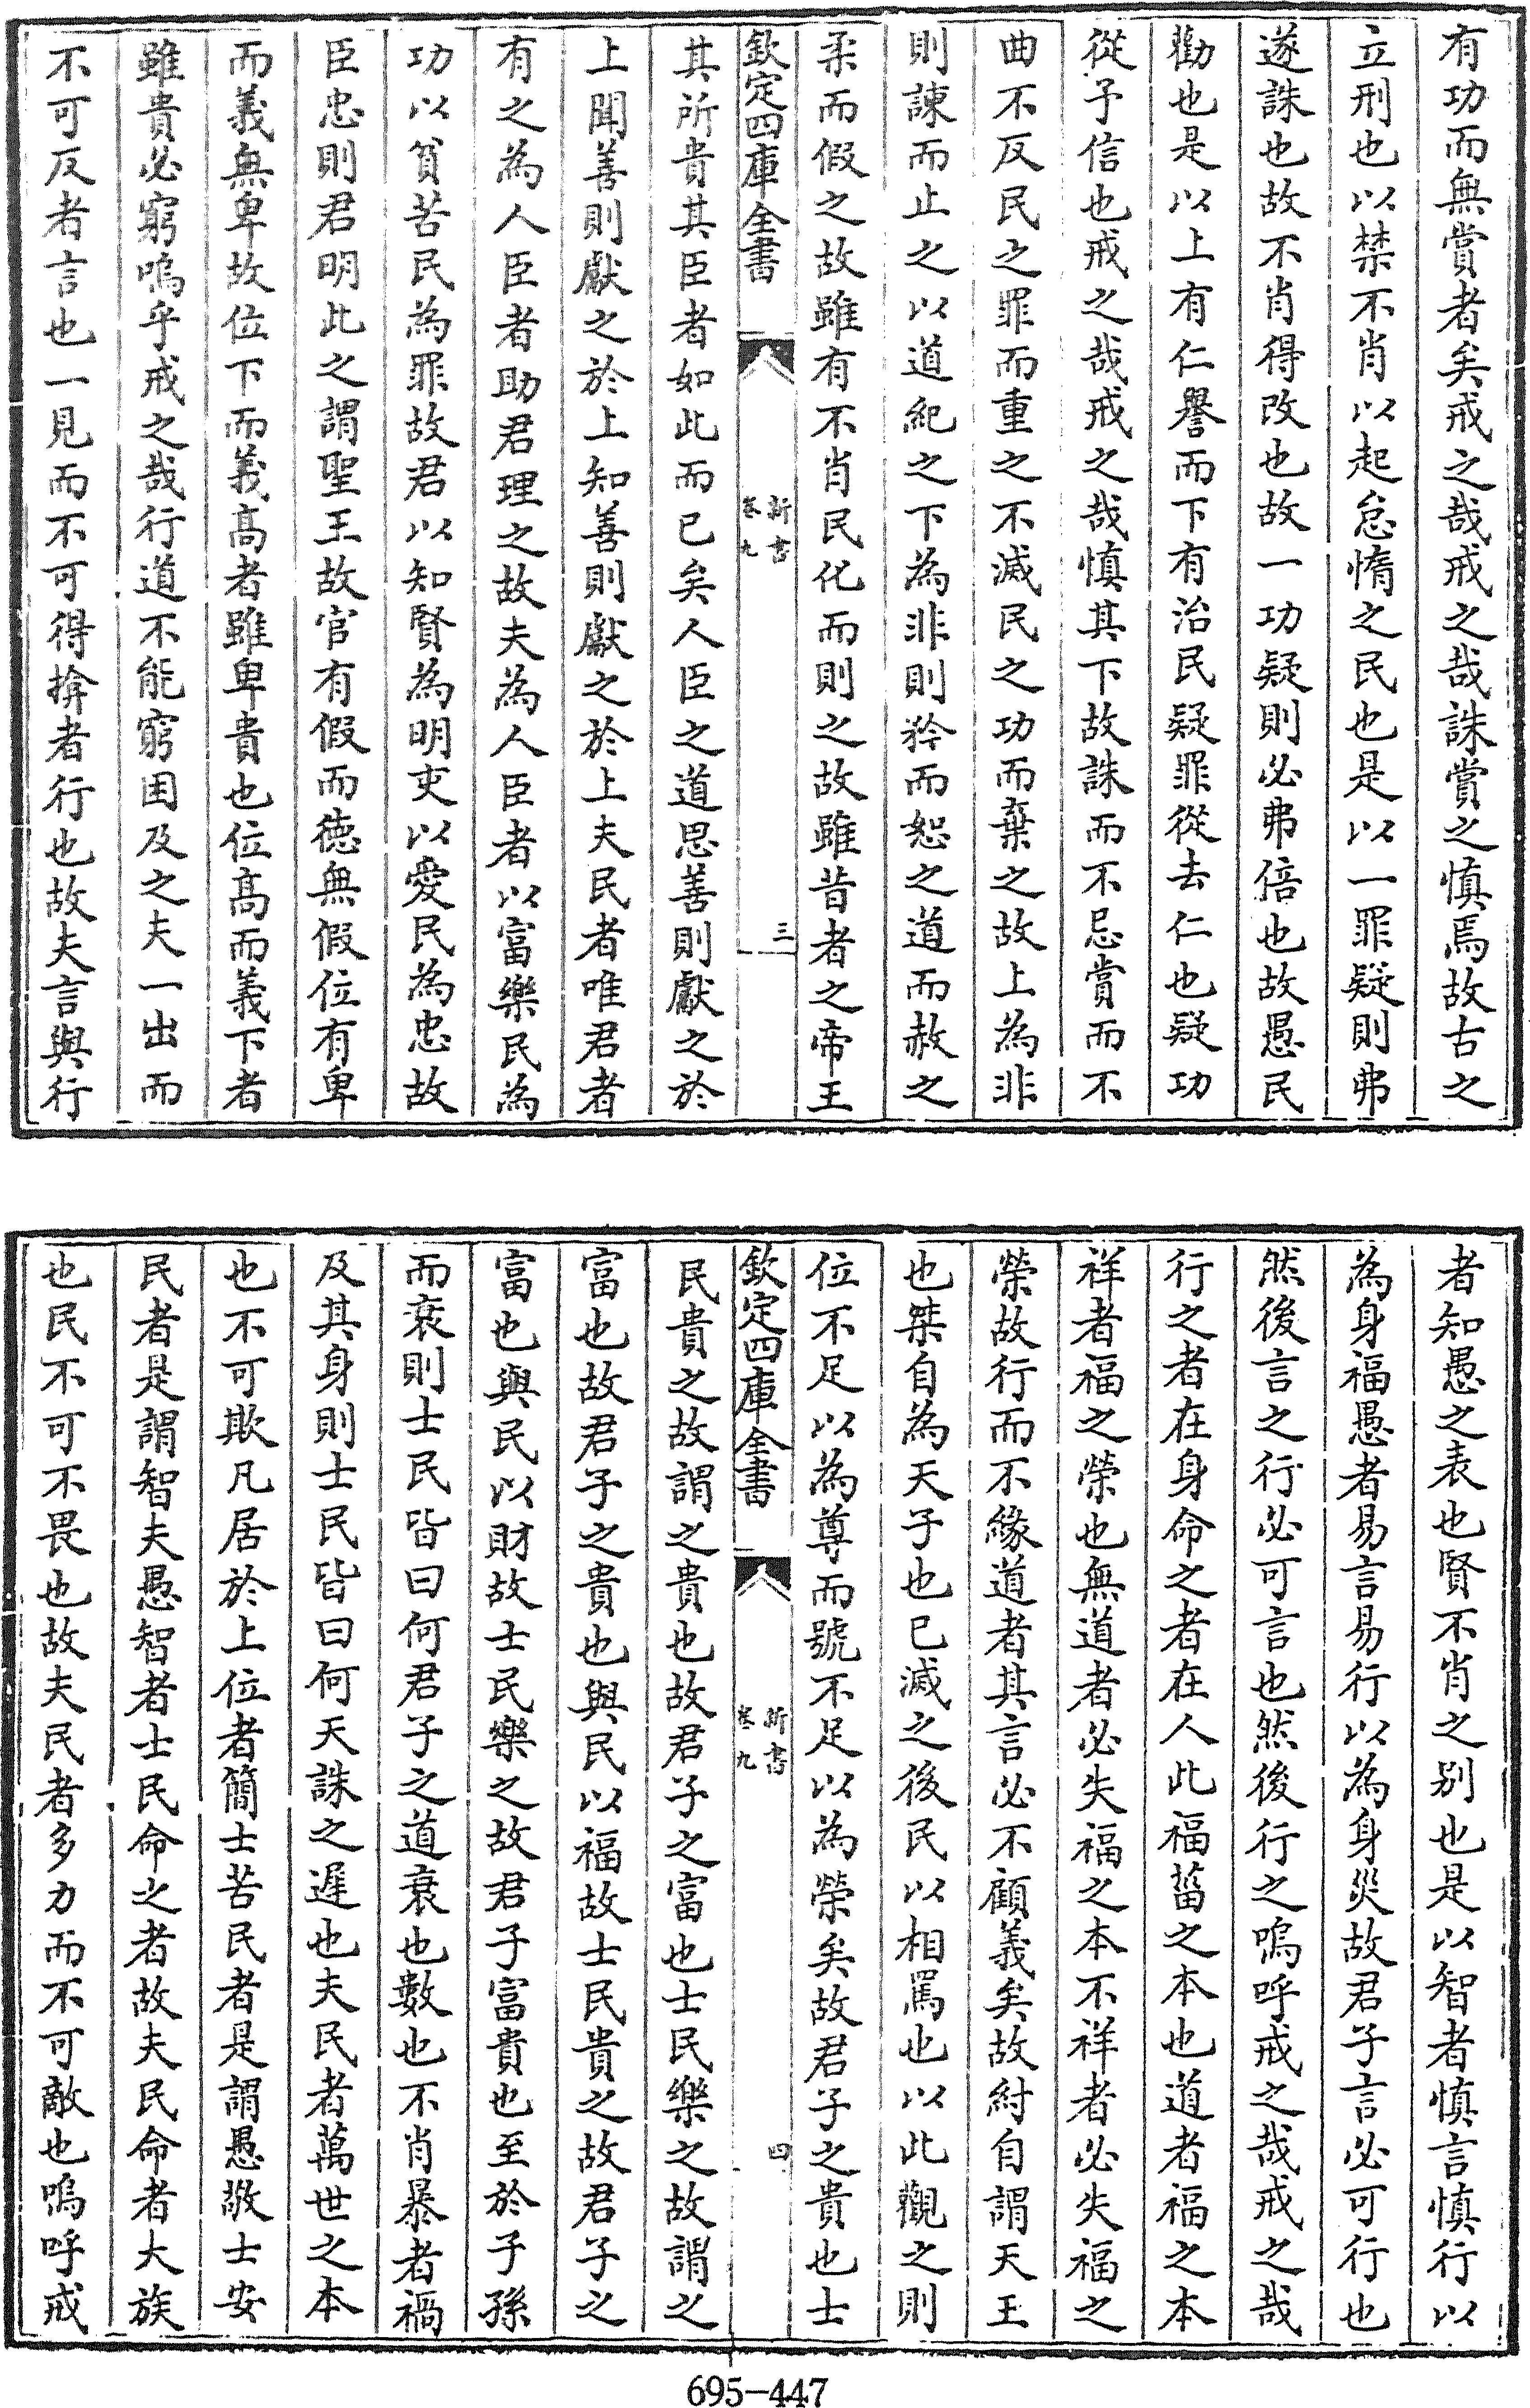 有功而無賞者矣戒之哉戒之哉誅賞之慎焉故古之
立刑也以禁不肖以起怠惰之民也是以一罪疑則弗
遂誅也故不肖得改也故一功疑則必弗倍也故愚民
勸也是以上有仁譽而下有治民疑罪從去仁也疑功
從予信也戒之哉戒之哉慎其下故誅而不忌賞而不
曲不反民之罪而重之不滅民之功而棄之故上為非
則諫而止之以道紀之下為非則矜而恕之道而赦之
柔而假之故雖有不肖民化而則之故雖昔者之帝王
欽定四庫全書
新書
卷九
三
其所貴其臣者如此而已矣人臣之道思善則獻之於
上聞善則獻之於上知善則獻之於上夫民者唯君者
有之為人臣者助君理之故夫為人臣者以富樂民為
功以貧苦民為罪故君以知賢為明吏以愛民為忠故
臣忠則君明此之謂聖王故官有假而徳無假位有卑
而義無卑故位下而義高者雖卑貴也位高而義下者
雖貴必窮嗚乎戒之哉行道不能窮困及之夫一出而
不可反者言也一見而不可得揜者行也故夫言與行
者知愚之表也賢不肖之別也是以智者慎言慎行以
為身福愚者易言易行以為身災故君子言必可行也
然後言之行必可言也然後行之嗚呼戒之哉戒之哉
行之者在身命之者在人此福菑之本也道者福之本
祥者福之榮也無道者必失福之本不祥者必失福之
榮故行而不緣道者其言必不顧義矣故紂自謂天王
也桀自為天子也已滅之後民以相罵也以此觀之則
位不足以為尊而號不足以為榮矣故君子之貴也士
欽定四庫全書
新書
卷九
四
民貴之故謂之貴也故君子之富也士民樂之故謂之
富也故君子之貴也與民以福故士民貴之故君子之
富也與民以財故士民樂之故君子富貴也至於子孫
而衰則士民皆曰何君子之道衰也數也不肖暴者禍
及其身則士民皆曰何天誅之遲也夫民者萬世之本
也不可欺凡居於上位者簡士苦民者是謂愚敬士安
民者是謂智夫愚智者士民命之者故夫民命者大族
也民不可不畏也故夫民者多力而不可敵也嗚呼戒
695-447